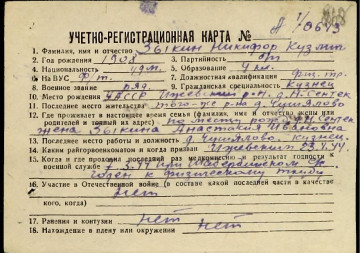 УЧЕТНО-РЕГИСТРАЦИОННАЯ КАРТА №
1. Фамилия, имя и отчество Зыкин Никифор Кузьм.
2. Год рождения 1908 3. Партийность б/п
4. Национальность удм. 5. Образование 4 кл.
6. На ВУС 7. Должностная квалификация
8. Военное звание ряд. 9. Гражданская специальность Кузнец
10. Место рождения УАССР Ижевский р-н
11. Последнее место жительства того-же р-на д. Чушялово
12. Где проживает в настоящее время семья (фамилия, имя и отчество жены или
родителей и точный их адрес)
жена Зыкина Анастасия Ивановна
13. Последнее место работы и должность д. Чушялово, кузнец.
14. Каким райгорвоенкоматом и когда призван Ижевский
15. Когда и где проходил раз медкомиссию и результат годности к
военной службе
годен к физическому труду
16. Участие в Отечественной войне (в составе какой последней части в качестве
кого, когда) нет
17. Ранения и контузии нет
18. Нахождение в плену или окружении нет